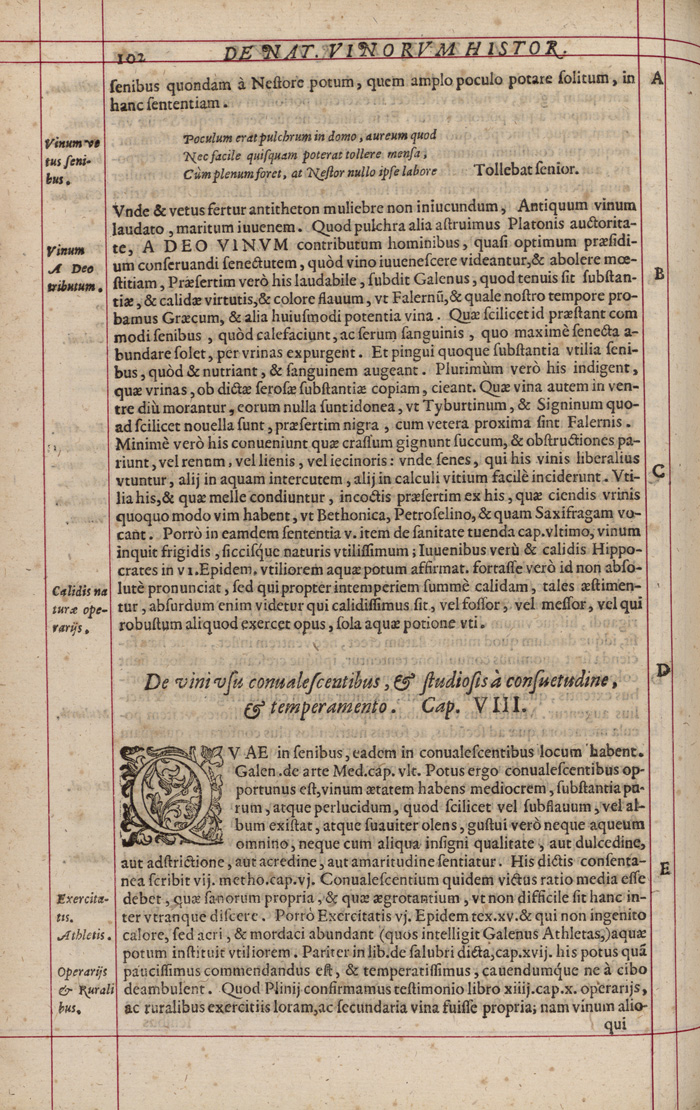 102 DE NAT. VINORVM HISTOR.
ſenibus quondam à Neſtore potum, quem amplo poculo potare ſolitum, in
hanc ſententiam.
A
Vinum ve
tus ſeni-
bus.
Poculum erat pulchrum in domo, aureum quod
Nec facile quiſquam poterat tollere menſa,
Cùm plenum foret, at Neſtor nullo ipſe labore Tollebat ſenior.
Vnde & vetus fertur antitheton muliebre non iniucundum, Antiquum vinum
laudato, maritum iuuenem. Quod pulchra alia aſtruimus Platonis auctorita-
te, A DEO VINVM contributum hominibus, quaſi optimum præſidi-
um conſeruandi ſenectutem, quòd vino iuueneſcere videantur,& abolere mœ-
ſtitiam, Præſertim verò his laudabile, ſubdit Galenus, quod tenuis ſit ſubſtan-
tiæ, & calidæ virtutis,& colore flauum, vt Falernũ,& quale noſtro tempore pro-
bamus Græcum, & alia huiuſmodi potentia vina. Quæ ſcilicet id præſtant com
modi ſenibus, quòd calefaciunt, ac ſerum ſanguinis, quo maximè ſenecta a-
bundare ſolet, per vrinas expurgent. Et pingui quoque ſubſtantia vtilia ſeni-
bus, quòd & nutriant, & ſanguinem augeant. Plurimùm verò his indigent,
quæ vrinas, ob dictæ ſeroſæ ſubſtantiæ copiam, cieant. Quæ vina autem in ven-
tre diù morantur, eorum nulla ſunt idonea, vt Tyburtinum, & Signinum quo-
ad ſcilicet nouella ſunt, præſertim nigra, cum vetera proxima ſint Falernis.
Minimè verò his conueniunt quæ craſſum gignunt ſuccum, & obſtructiones pa-
riunt, vel renum, vel lienis, vel iecinoris: vnde ſenes, qui his vinis liberalius
vtuntur, alij in aquam intercutem, alij in calculi vitium facilè inciderunt. Vti-
lia his,& quæ melle condiuntur, incoctis præſertim ex his, quæ ciendis vrinis
quoquo modo vim habent, vt Bethonica, Petroſelino, & quam Saxifragam vo-
cant. Porrò in eamdem ſententia v. item de ſanitate tuenda cap.vltimo, vinum
inquit frigidis, ſicciſque naturis vtiliſſimum; Iuuenibus verù & calidis Hippo-
crates in v1.Epidem. vtiliorem aquæ potum affirmat. fortaſſe verò id non abſo-
lutè pronunciat, ſed qui propter intemperiem ſummè calidam, tales æſtimen-
tur, abſurdum enim videtur qui calidiſſimus ſit, vel foſſor, vel meſſor, vel qui
robuſtum aliquod exercet opus, ſola aquæ potione vti.
Vinum
A Deo
tributum.
B
C
Calidis na
turæ ope-
rarijs.
D
De vini vſu conualeſcentibus, & ſtudioſis à conſuetudine,
& temperamento. Cap. VIII.
QVAE in ſenibus, eadem in conualeſcentibus locum habent.
Galen.de arte Med.cap. vlt. Potus ergo conualeſcentibus op-
portunus eſt,vinum ætatem habens mediocrem, ſubſtantia pu-
rum, atque perlucidum, quod ſcilicet vel ſubflauum, vel al-
bum exiſtat, atque ſuauiter olens, guſtui verò neque aqueum
omnino, neque cum aliqua inſigni qualitate, aut dulcedine,
aut adſtrictione, aut acredine, aut amaritudine ſentiatur. His dictis conſenta-
nea ſcribit vij. metho.cap.vj. Conualeſcentium quidem victus ratio media eſſe
debet, quæ ſanorum propria, & quæ ægrotantium, vt non difficile ſit hanc in-
ter vtranque diſcere. Porrò Exercitatis vj. Epidem tex.xv.& qui non ingenito
calore, ſed acri, & mordaci abundant (quos intelligit Galenus Athletas,)aquæ
potum inſtituit vtiliorem. Pariter in lib.de ſalubri dicta,cap.xvij. his potus quã
pauciſſimus commendandus eſt, & temperatiſſimus, cauendumq́ue ne à cibo
deambulent. Quod Plinij confirmamus teſtimonio libro xiiij.cap.x. operarijs,
ac ruralibus exercitiis loram,ac ſecundaria vina fuiſſe propria; nam vinum alio-
qui
E
Exercita-
tis.
Athletis.
Operarijs
& Rurali
bus.